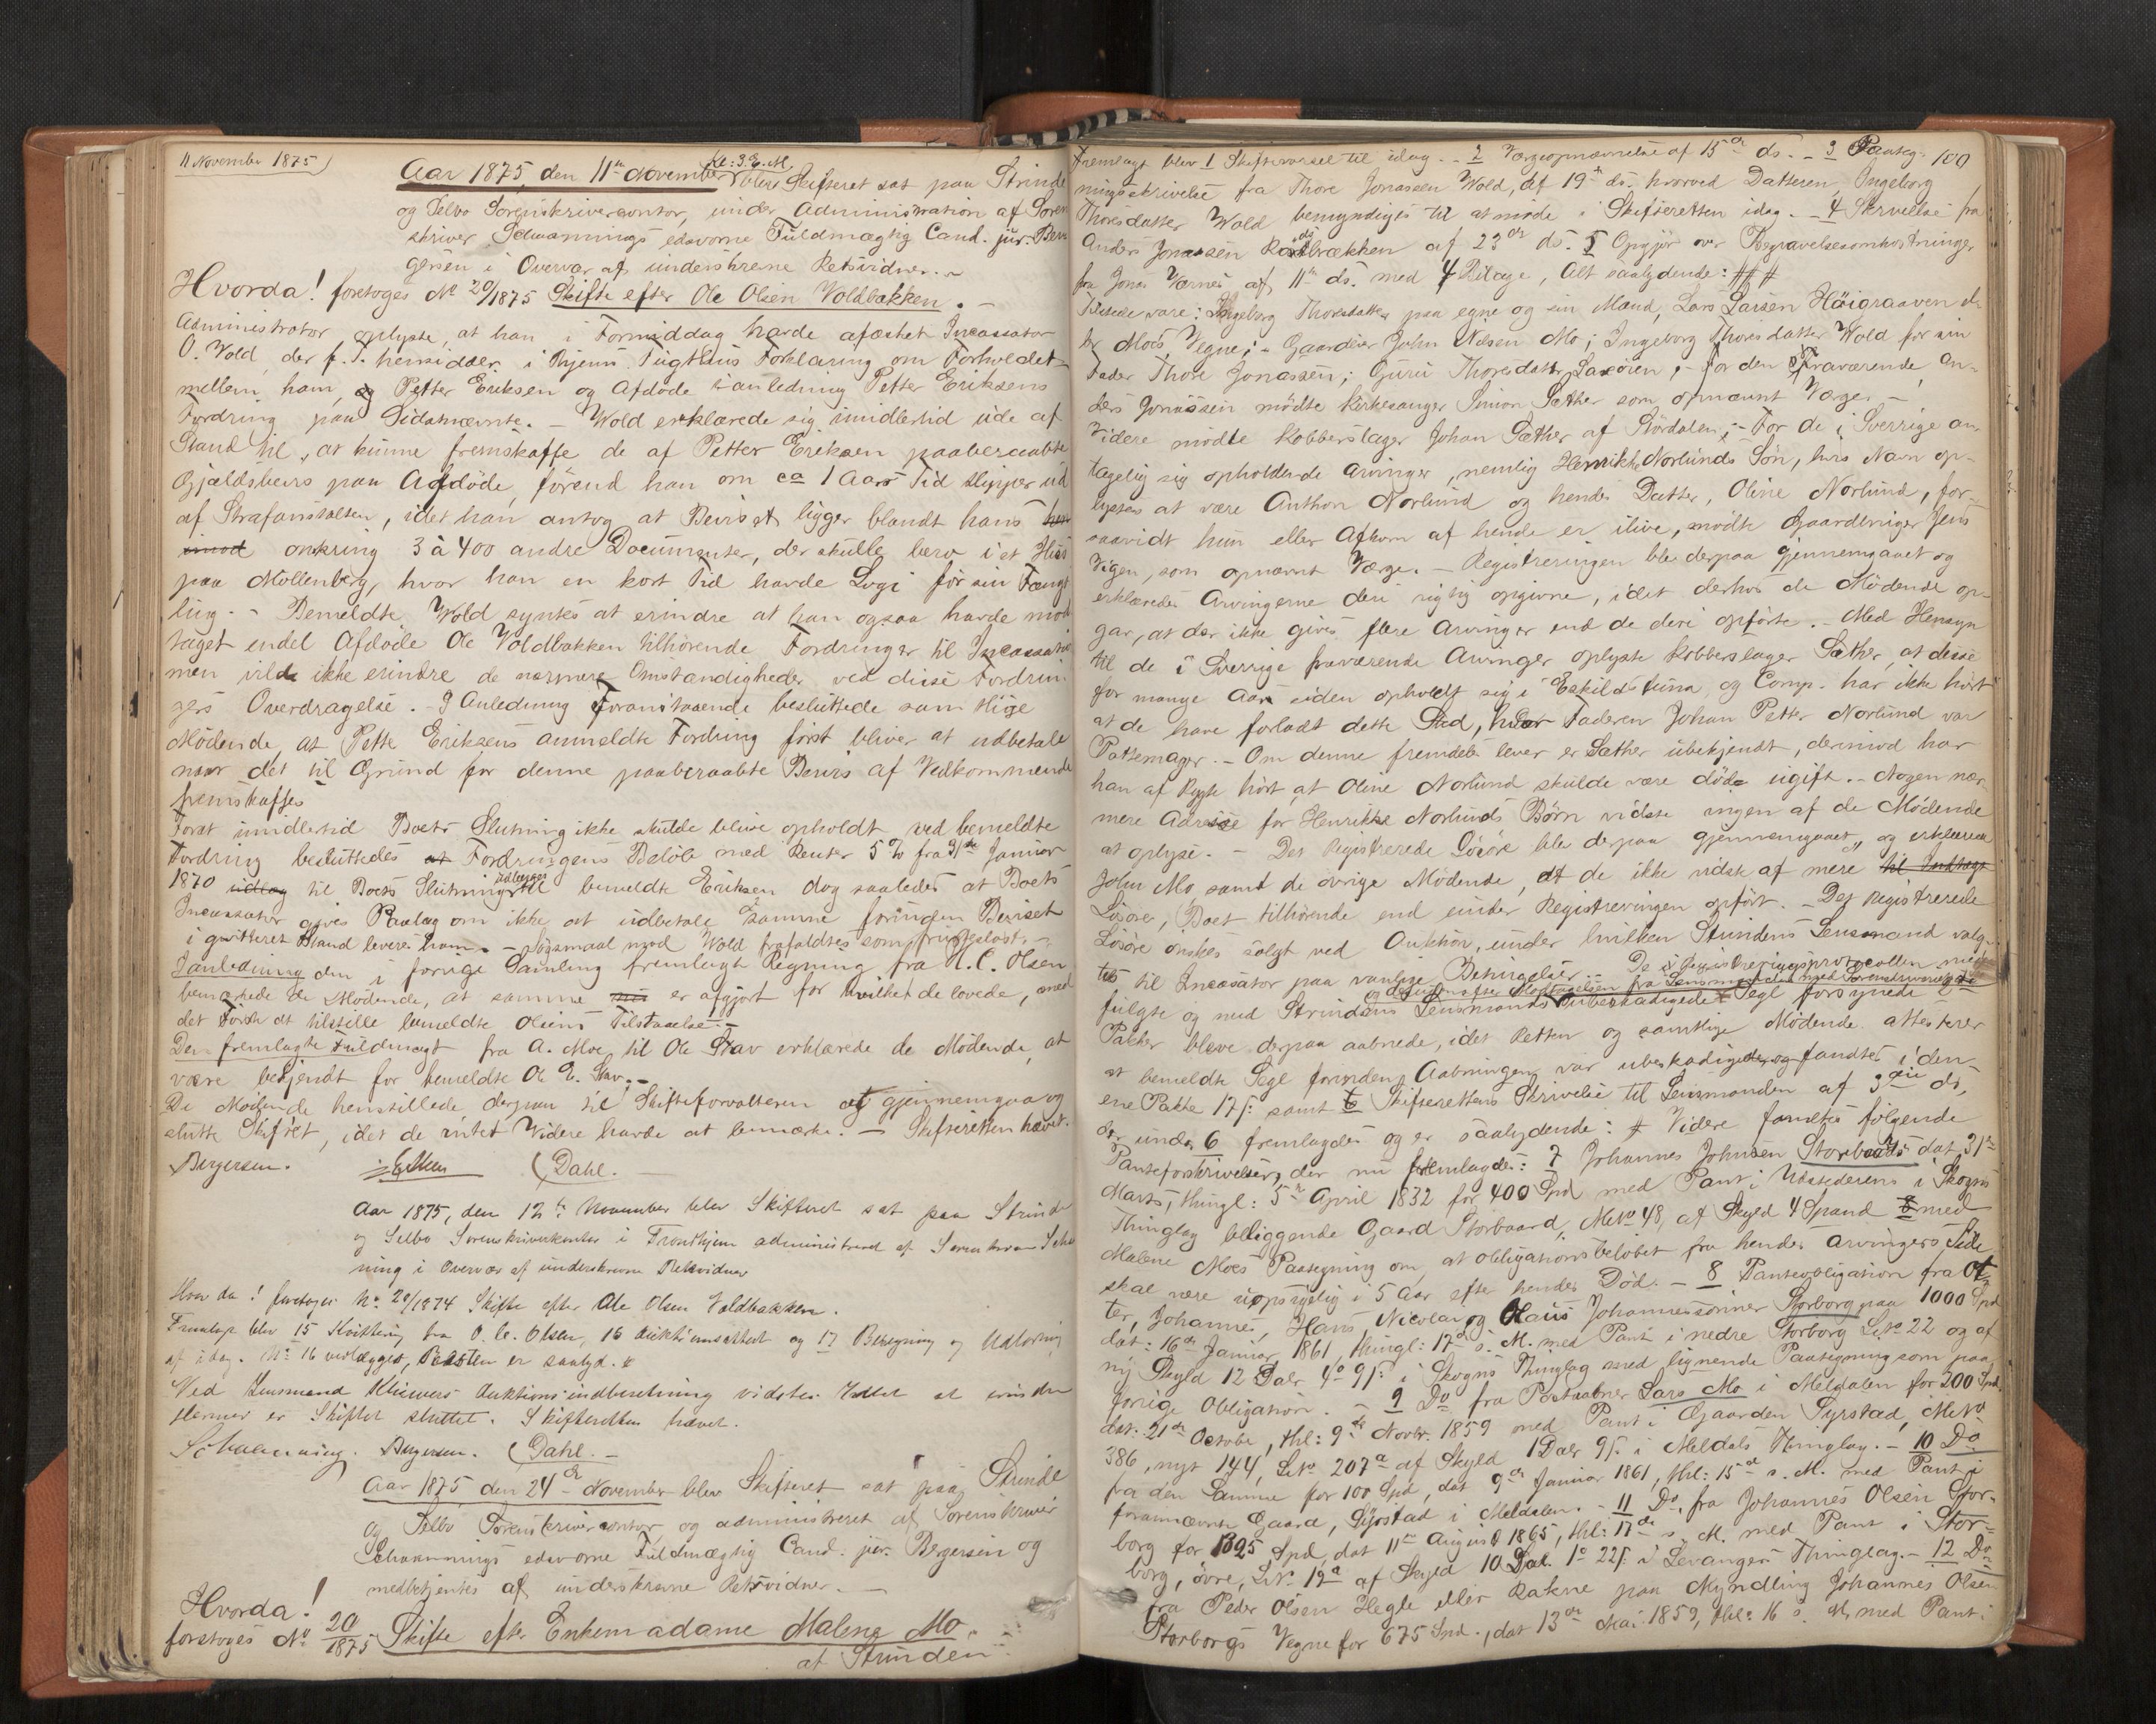 11 November 1875
Aar 1875, den 11te November Kl: 3 E. M. blev Skifteret sat paa Strinde
og Selbo Sorenskrivercontor, under Administration af Soren
skriver Schannings edsvorne Fuldmægtig Cand. jur. Ber
gersen i Overvær af underskrevne Retsvidner.
Hvorda! foretoges No 20/1875 Skifte efter Ole Olsen Voldbakken.
Administrator oplyste, at han i Formiddag havde afæsket Incassator
O. Wold, der f. T. hensidder i Thjems Tugthus Forklaring om Forholdet
mellem ham, og Petter Eriksen og Afdøde i anledning Petter Eriksens
Fordring paa Sidstnævnte. - Wold erklærede sig imidlertid ude af
Stand til, at kunne fremskaffe de af Petter Eriksen paaberaabte
Gjældsbevis paa Afdøde, førend han om ca 1 Aars Tid slipper ud
af Strafanstalten, idet han antog at Beviset ligger blandt hans
omkring 3 à 400 andre Documenter, der skulle bero i et Hus
paa Møllenberg, hvor han en kort Tid havde Logi før sin Fængs
ling. - Bemeldte Wold syntes at erindre at han ogsaa havde mod
taget endel Afdøde Ole Voldbakken tilhørende Fordringer til Incassation
men vilde ikke erindre de nærmere Omstændigheder ved disse Fordrin
gers Overdragelse. - I Anledning Foranstaaende besluttede samtlige
Mødende, at Petter Eriksens anmeldte Fordring først bliver at udbetale
naar det til Grund for denne paaberaabte Bevis af Vedkommende
fremskaffes
Forat imidlertid Boets Slutning ikke skulde blive opholdt ved bemeldte
Fordring besluttedes at Fordringens Beløb med Renter 5 % fra 31te Januar
1870 til Boets Slutning udlægges til bemeldte Eriksen dog saaledes at Boets
Incassator gives Paalæg om ikke at udbetale Samme forinden Beviset
i qvitteret Stand leveres ham. - Søgsmaal mod Wold frafaldtes som frugtesløst. -
I anledning den i forrige Samling fremlagte Regning fra O. C. Olsen
bemærkede de Mødende, at samme er afgjort for hvilket de lovede, med
det Første at tilstille bemeldte Olsens Tilstaaelse. -
Den fremlagte Fuldmagt fra A. Moe til Ole Stav erklærede de Mødende, at
være bekjendt for bemeldte O. E. Stav. -
De Mødende henstillede derpaa til Skifteforvalteren at gjennemgaa og
slutte Skiftet, idet de intet Videre havde at bemærke. - Skifteretten hævet.
Bergersen. Dahl.
Aar 1875, den 12te November blev Skifteret sat paa Strinde
og Selbo Sorenskriverkontor i Trondhjem administreret af Sorenskriver Scha
ning i Overvær af underskrevne Retsvidner
Hvor da! foretoges No 20/1874 Skifte efter Ole Olsen Voldbakken.
Fremlagt blev 15 Kvittering fra O. C. Olsen, 16 Auktionsattest og 17 Beregning og Udlodning
af idag. No 16 vedlægges, Resten er saalyd. #
Ved Lensmand Kliewers Auktionsindberetning vidstes Intet at erindre
Hermed er Skiftet sluttet. Skifteretten hævet.
Schanning. Bergersen. Dahl. -
Aar 1875 den 24de November blev Skifteret sat paa Strinde
og Selbo Sorenskrivercontor og administreret af Sorenskriver
Schannings edsvorne Fuldmægtig Cand. jur. Bergersen og
medbetjentes af underskrevne Retsvidner. -
Hvorda!
foretoges No 20/1875 Skifte efter Enkemadame Malena Mo
af Strinden
100
Fremlagt blev 1 Skiftevarsel til idag. - 2 Værgeopnævnelse af 15de ds. - 3 Paateg-
ningsskrivelse fra Thore Jonassen Wold, af 19de ds. hvorved Datteren Ingeborg
Thoresdatter Wold bemyndiges til at møde i Skifteretten idag. - 4 Skrivelse fra
Anders Jonassen af 23de ds. 5 Opgjør over Begravelsesomkostninger
fra Jonas Værnes af 11te ds. med 4 Bilage, Alt saalydende: # # #
Tilstede vare: Ingeborg Thoresdatter paa egne og sin Mand, Lars Larsen Høigraaven
Moes Vegne; - Gaardbr. John Nilsen Mo; Ingeborg Thoresdatter Wold for sin
Fader Thore Jonassen; Guru Thoresdatter Saxøien; - for den Fraværende An-
ders Jonassen mødte Kirkesanger Simon Sæther som opnævnt Værge -
Videre mødte Kobberslager Johan Sæther af Stördalen; - For de i Sverrige an-
tagelig sig opholdende Arvinger, nemlig Henrikke Norlunds Søn, hvis Navn op-
lystes at være Anthon Norlund og hendes Datter, Oline Norlund, for-
saavidt hun eller Afkom af hende er ilive, mødte Gaardbruger Jens
Vigen, som opnævnt Værge. - Registreringen blev derpaa gjennemgaaet og
erklæredes Arvingerne deri rigtig opgivne, idet derhos de Mødende op-
gav, at der ikke gives flere Arvinger end de deri opførte. - Med Hensyn
til de i Sverrige fraværende Arvinger oplyste Kobberslager Sæther, at disse
for mange Aar siden opholdt sig i Eskildstuna, og Comp. har ikke hørt
at de have forladt dette Sted, hvor Faderen Johan Petter Norlund var
Pottemager. - Om denne fremdeles lever er Sæther ubekjendt, derimod har
han af Rygte hørt at Oline Norlund skulde være døde ugift. - Nogen nær-
mere Adresse for Henrikke Norlunds Børn vidste ingen af de Mødende
at oplyse. - Det Registrerede Løsøre blev derpaa gjennemgaaet, og erklærede
John Mo samt de øvrige Mødende, at de ikke vidste af mere til Indtægt
Løsøre, Boet tilhørende end under Registreringen opført. - Det Registrerede
Løsøre ønskes solgt ved Auktion, under hvilken Strindens Lensmand valg-
tes til Incassator paa vanlige Betingelser. - De i Registreringsprotocollen med-
fulgte og med Strindens Lensmands ubeskadigede Segl forsynede 2
Pakker bleve derpaa aabnede, idet Retten og samtlige Mødende attesterer
at bemeldte Segl forinden Aabningen var ubeskadigede, og fandtes i den
ene Pakke 17 s: samt Skifterettens Skrivelse til Lensmanden af 3die ds,
der under 6 fremlagdes og er saalydende: # Videre fandtes følgende
Panteforskrivelser, der nu fremlagdes: 7 Johannes Johnsen Storbords dat. 31te
Marts, thingl: 5te April 1832 for 400 Spd med Pant i Udstederens i Skogns
Thinglag beliggende Gaard Storbaard, M. No 48, af Skyld 4 Spand med
Malene Moes Paategning om, at Obligationsbeløbet fra hendes Arvingers Side
skal være uopsigelig i 5 Aar efter hendes Død. - 8 Panteobligation fra Ot-
ter, Johannes, Hans, Nicolay og Claus Johannessønner Storborg paa 1000 Spd
dat: 16de Januar 1861, thingl: 17de s. M. med Pant i nedre Storborg L. No 22 og af
ny Skyld 12 Daler 4 o 9 s: i Skogns Thinglag med lignende Paategning som paa
forrige Obligation. - 9 Do fra Postaabner Lars Mo i Meldalen for 200 Spd.
dat: 21de October, thl: 9de Novbr. 1859 med Pant i Gaarden Syrstad, M. No
386, nyt 144, L. No 207a af Skyld 1 Daler 9 s. i Meldals Thinglag. - 10 Do
fra den Samme for 100 Spd, dat 9de Januar 1861, thl: 15de s. M. med Pant i
forannævnte Gaard, Syrstad i Meldalen. - 11 Do fra Johannes Olsen Stor-
borg for 1325 Spd, dat 11te August 1865, thl: 17de s. M. med Pant i Stor-
borg, øvre, L. No 19a af Skyld 10 Dal. 1 o 22 s. i Levanger Thinglag. - 12 Do
fra Peder Olsen Hegle eller Rakne paa Myndling Johannes Olsen
Storborgs Vegne for 675 Spd., dat 13de Mai 1859, thl: 16 s. M. med Pant i